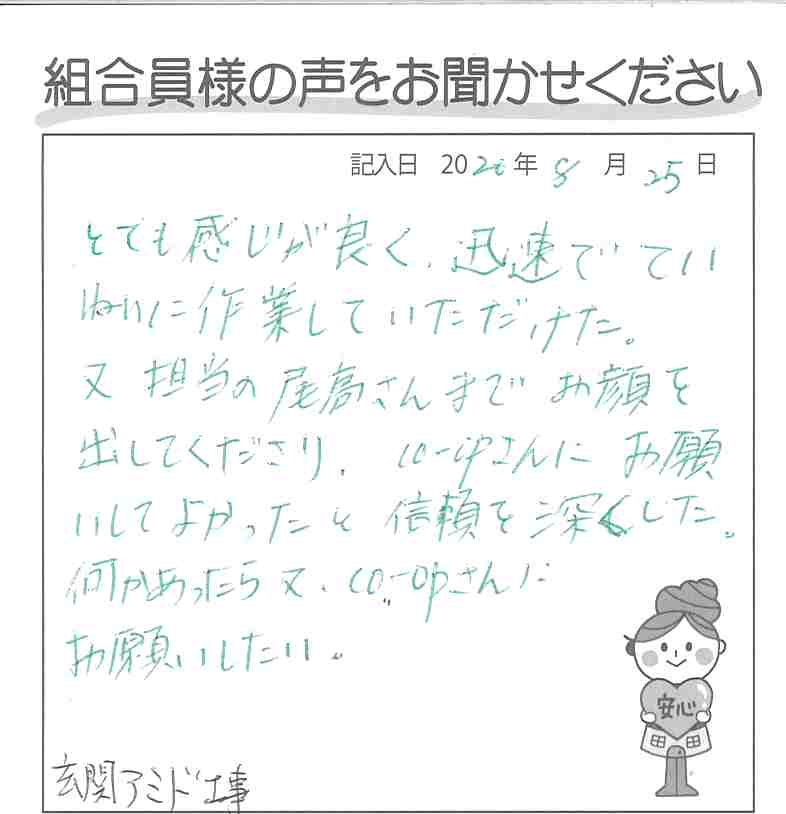 組合員様の声をお聞かせください
記入日 2020年 8月 25日
とても感じが良く、迅速でてい
ねいに作業していただけた。
又 担当の尾高さんまで お顔を
出してくださり、co-opさんに お願
いしてよかったと 信頼を深くした。
何かあったら又、co-opさんに
お願いしたい。
安心
玄関アミド工事